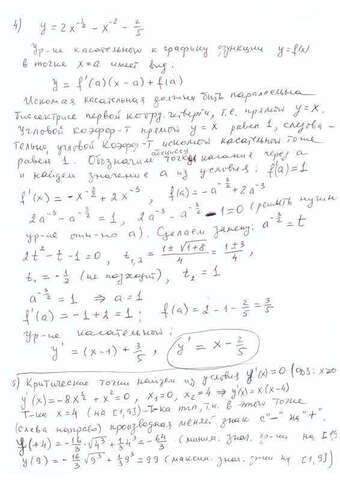 4) y = 2x^{-1/2} - x^{-2} - 2/5
Ур-ние касательной к графику функции y=f(x)
в точке x=a имеет вид:
y = f'(a)(x-a)+f(a)
Искомая касательная должна быть параллельна
биссектрисе первой коорд. четверти, т.е. прямой y=x.
Угловой коэфф-т прямой y=x равен 1, следова-
тельно, угловой коэфф-т искомой касательной тоже
равен 1. Обозначим абсциссу точки касания через a
и найдем значение a из условия: f'(a)=1
f'(x) = -x^{-3/2} + 2x^{-3}, f'(a) = -a^{-3/2} + 2a^{-3}
2a^{-3} - a^{-3/2} = 1, 2a^{-3} - a^{-3/2} - 1=0 (решить нужно
ур-ние отн-но a). Сделаем замену: a^{-3/2} = t
2t² - t - 1 = 0, t_{1,2} = (1±√(1+8))/4 = (1±3)/4,
t₁ = -1/2 (не подходит), t₂ = 1
a^{-3/2} = 1 ⇒ a = 1
f'(a) = -1+2 = 1; f(a) = 2-1-2/5 = 3/5
Ур-ние касательной:
y = (x-1) + 3/5, y = x - 2/5
5) Критические точки найдем из условия y'(x)=0
y'(x) = -8x^{1/2} + x² = 0, x₁=0, x₂=4
Т-ка x=4 (на [1,9]) -т-ка min, т.к. в этой точке
(слева направо) производная меняет знак с "-" на "+"
y(4) = -16/3 · √4³ + 1/3 4³ = -64/3 (миним. знач. ф-ции на [1,9])
y(9) = -16/3 √9³ + 1/3 9³ = 99 (максим. знач. ф-ции на [1,9])